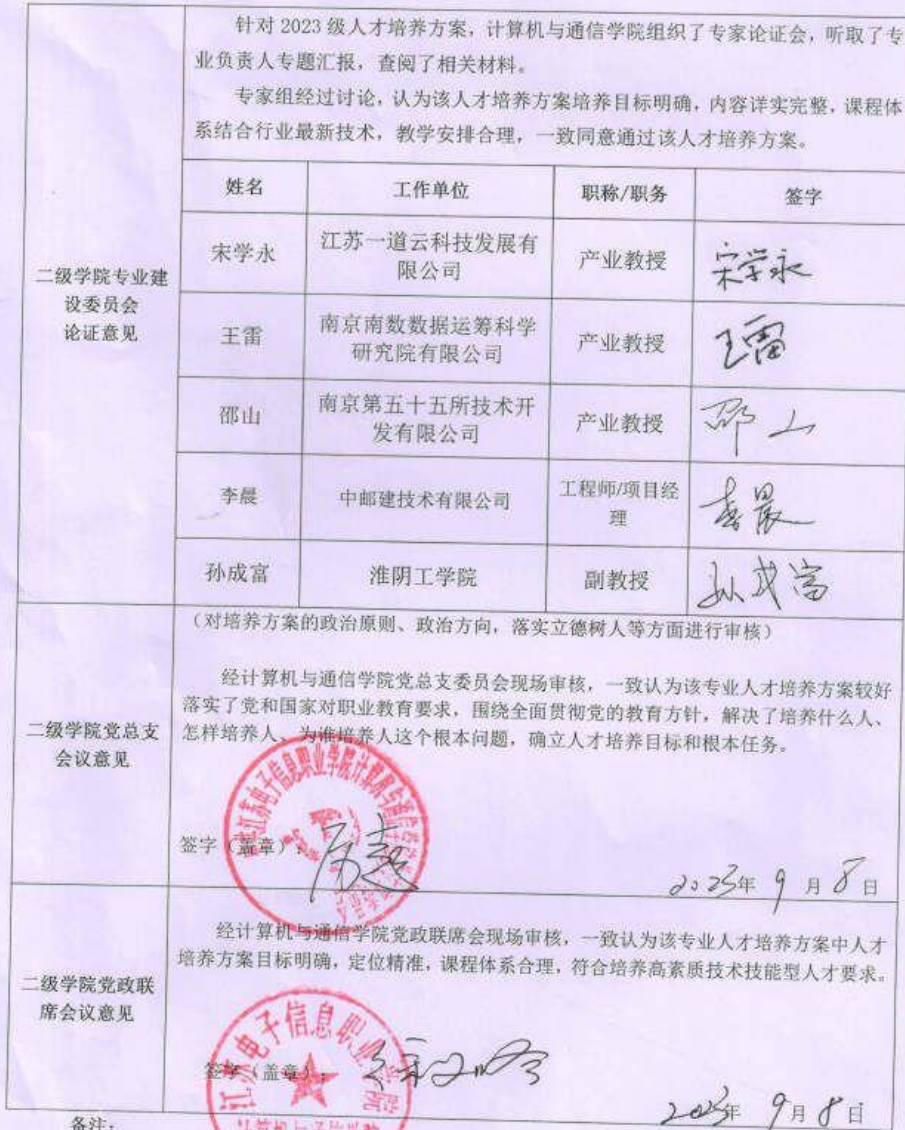 针对 2023 级人才培养方案，计算机与通信学院组织了专家论证会，听取了专
业负责人专题汇报，查阅了相关材料。
专家组经过讨论，认为该人才培养方案培养目标明确，内容详实完整，课程体
系结合行业最新技术，教学安排合理，一致同意通过该人才培养方案。
二级学院专业建
设委员会
论证意见
姓名 工作单位 职称/职务 签字
宋学永 江苏一道云科技发展有
限公司 产业教授 宋学永
王雷 南京南数数据运筹科学
研究院有限公司 产业教授 王雷
邵山 南京第五十五所技术开
发有限公司 产业教授 邵山
李晨 中邮建技术有限公司 工程师/项目经
理 李晨
孙成富 淮阴工学院 副教授 孙成富
二级学院党总支
会议意见
（对培养方案的政治原则、政治方向，落实立德树人等方面进行审核）
经计算机与通信学院党总支委员会现场审核，一致认为该专业人才培养方案较好
落实了党和国家对职业教育要求，围绕全面贯彻党的教育方针，解决了培养什么人、
怎样培养人、为谁培养人这个根本问题，确立人才培养目标和根本任务。
签字（盖章）：
2023年 9 月 8 日
二级学院党政联
席会议意见
经计算机与通信学院党政联席会现场审核，一致认为该专业人才培养方案中人才
培养方案目标明确，定位精准，课程体系合理，符合培养高素质技术技能型人才要求。
江苏电子信息职业学院
签字（盖章）：
2023年 9月 8 日
备注：